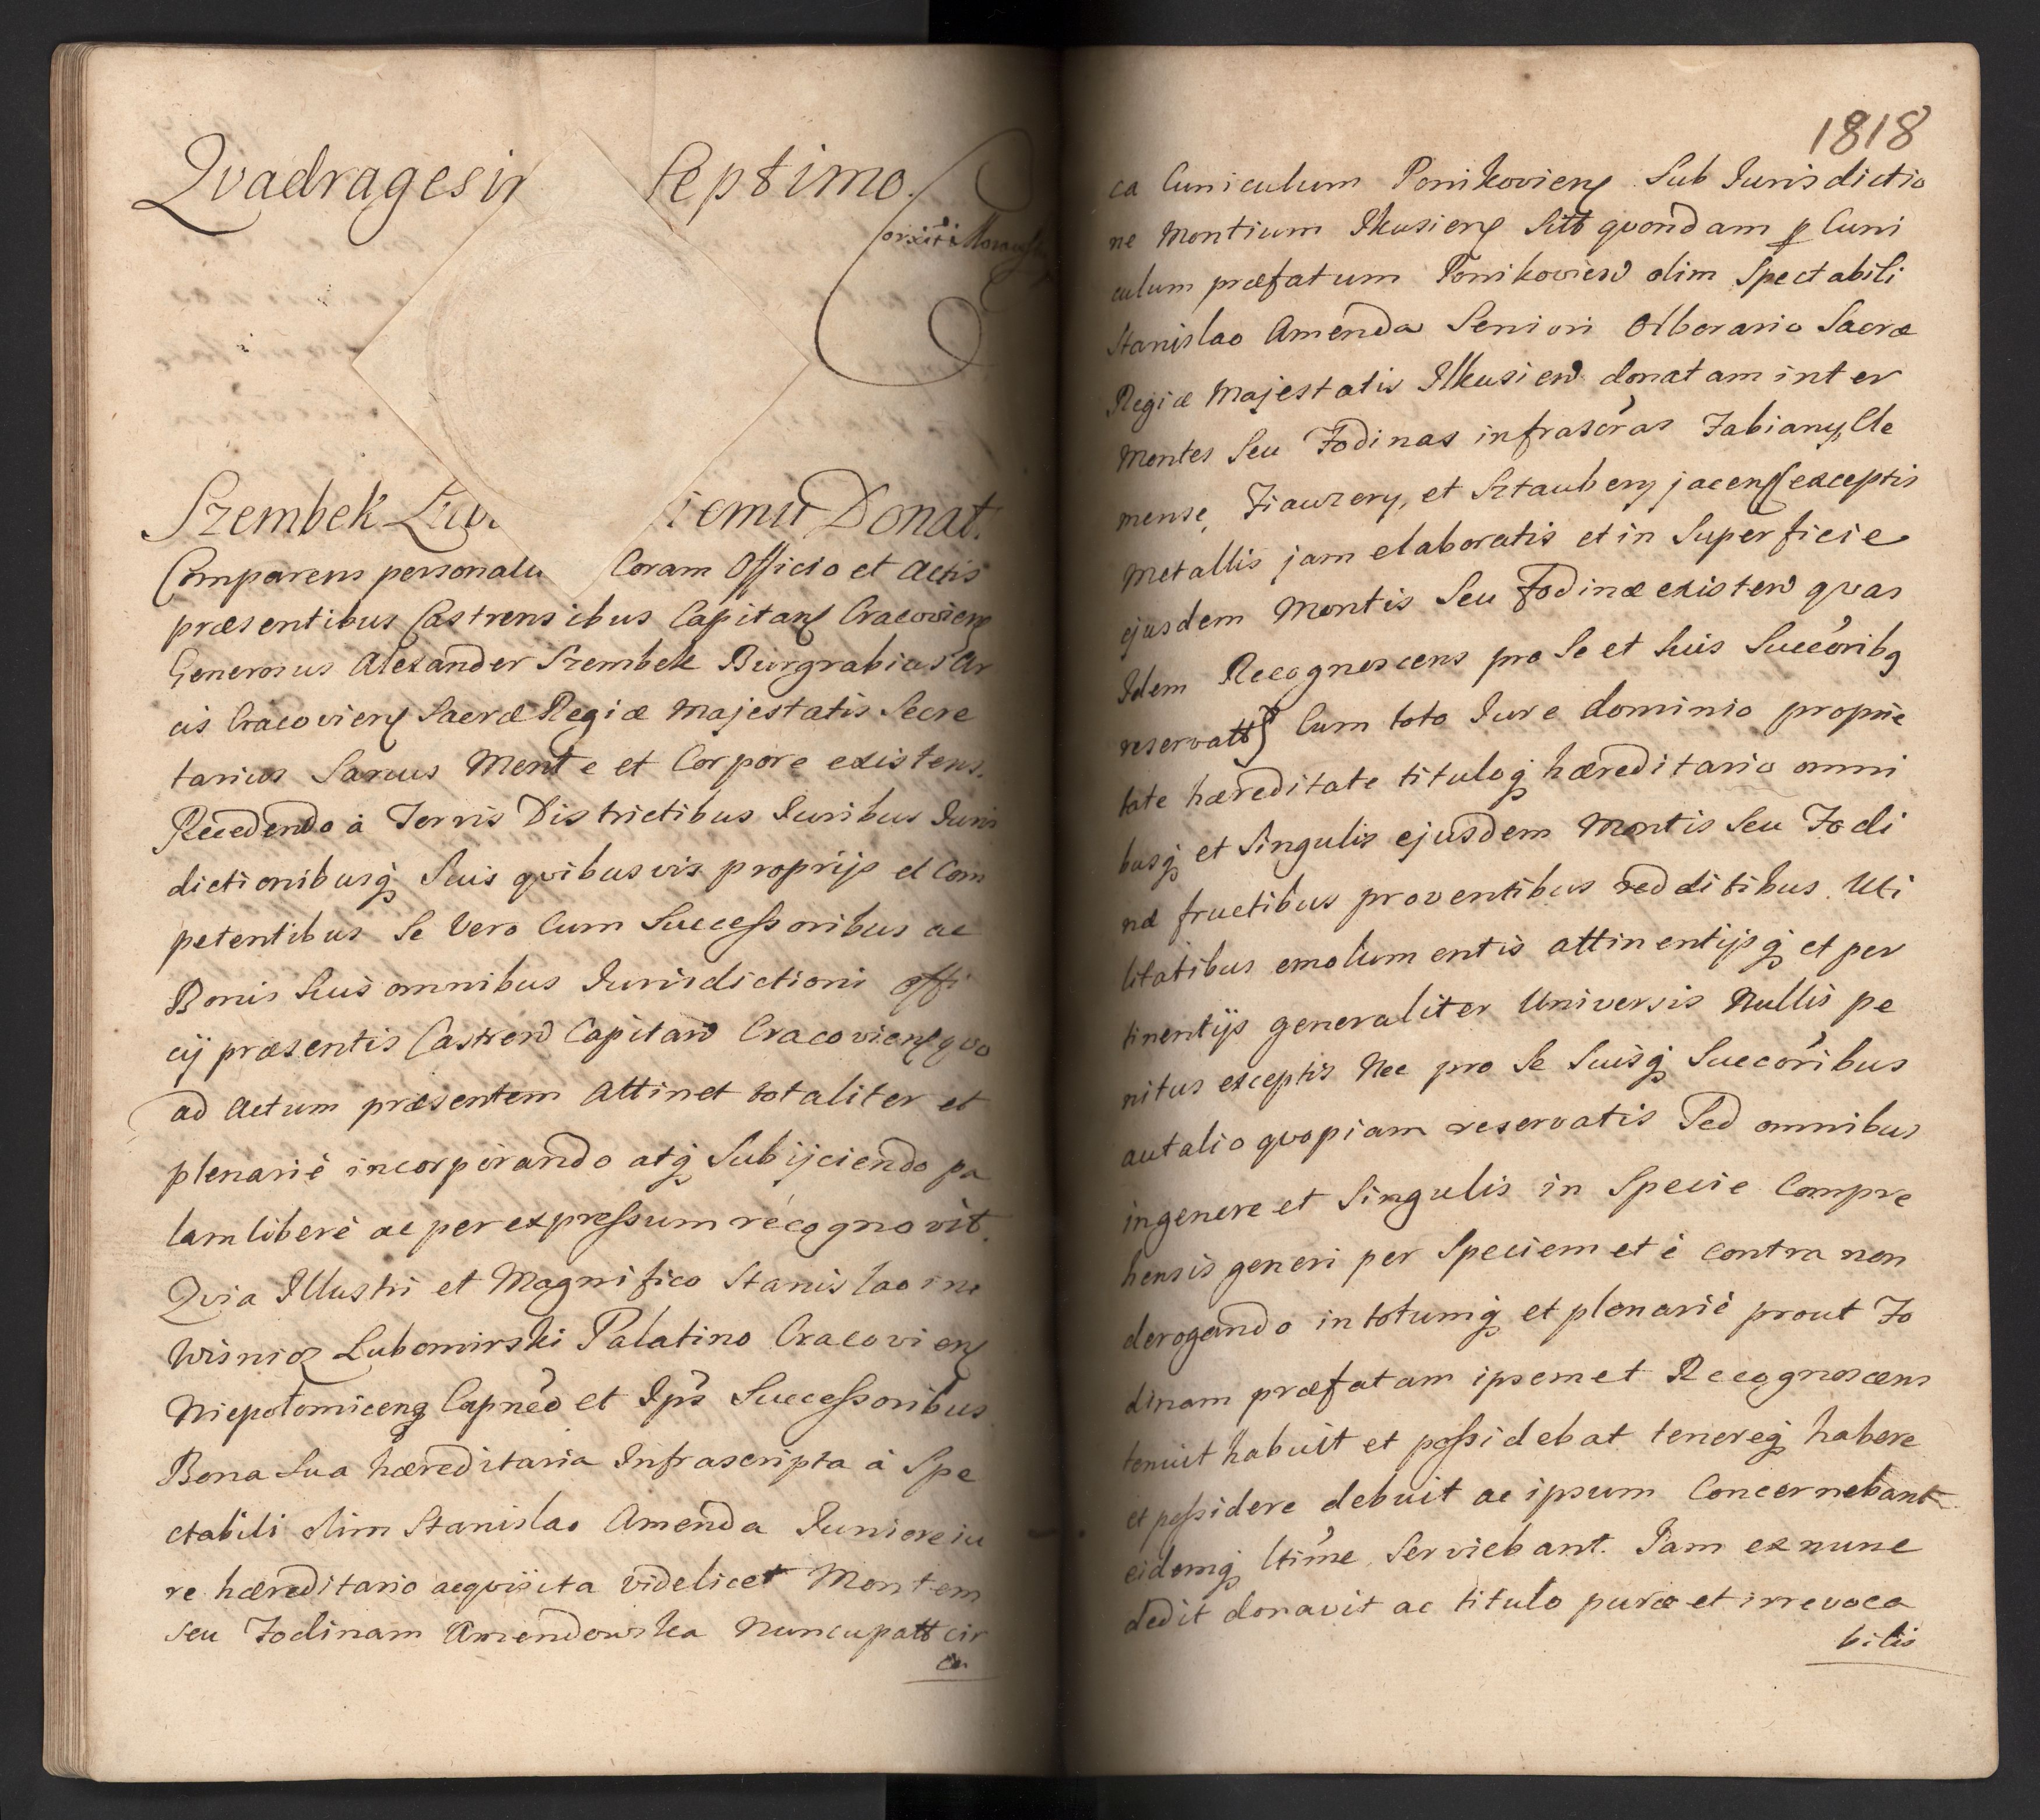 Qvadragesim Septimo.
Szembek Lub iemu Donat.
Comparens personalit Coram Officio et Actis
præsentibus Castrensibus Capitan Cracovien
Generosus Alexander Szembek Burgrabius Ar
cis Cracovien Sacræ Regiæ Majestatis Secre
tarius Sanus Mente et Corpore existens.
Recedendo à Terris Districtibus Iuribus Iuris
dictionibusq Suis qvibusvis proprijs et Com
petentibus Se Vero Cum Successoribus ac
Bonis Suis omnibus Iurisdictioni Offi
cij præsentis Castren Capitan Cracovien qvo
ad Actum præsentem Attinet totaliter et
plenariè incorporando atq Subijciendo pa
lam liberè ac per expressum recognovit.
Qvia Illustri et Magnifico Stanislao in
Wisnicz Lubomirski Palatino Cracovien
Niepołomicenq Capneo et Ips Successoribus
Bona Sua hæreditaria Infrascripta à Spe
ctabili olim Stanislao Amenda Iuniore iu
re hæreditario acqvisita videlicet Montem
seu Fodinam Amendowska Nuncupatt cir
ca
1818
ca Cuniculum Ponikovien Sub Iurisdictio
ne Montium Ilkusien Sitt qvondam p Cuni
culum præfatum Ponikovien olim Spectabili
Stanislao Amenda Seniori Olborario Sacræ
Regiæ Majestatis Ilkusien donatam inter
Montes Seu Fodinas infrascras Fabiany, Cle
mense, Fiauzery, et Sztaubery jacen (exceptis
Metallis jam elaboratis et in Superficie
ejusdem Montis Seu Fodinæ existen qvas
Idem Recognoscens pro Se et Suis Succoribq
reservatt) Cum toto Iure dominio proprie
tate hæreditate tituloq hæreditario omni
busq et Singulis ejusdem Montis Seu Fodi
næ fructibus proventibus redditibus Uti
litatibus emolumentis attinentijsq et per
tinentijs generaliter Universis Nullis pe
nitus exceptis Nec pro Se Suisq Succoribus
aut alio qvopiam reservatis Sed omnibus
in genere et Singulis in Specie Compre
hensis generi per Speciem et è contra non
derogando in totumq et plenariè prout Fo
dinam præfatam ipsemet Recognoscens
tenuit habuit et possidebat tenereq habere
et possidere debuit ac ipsum Concernebant
eidemq ltime Serviebant. Iam ex nunc
dedit donavit ac titulo puræ et irrevoca
bilis